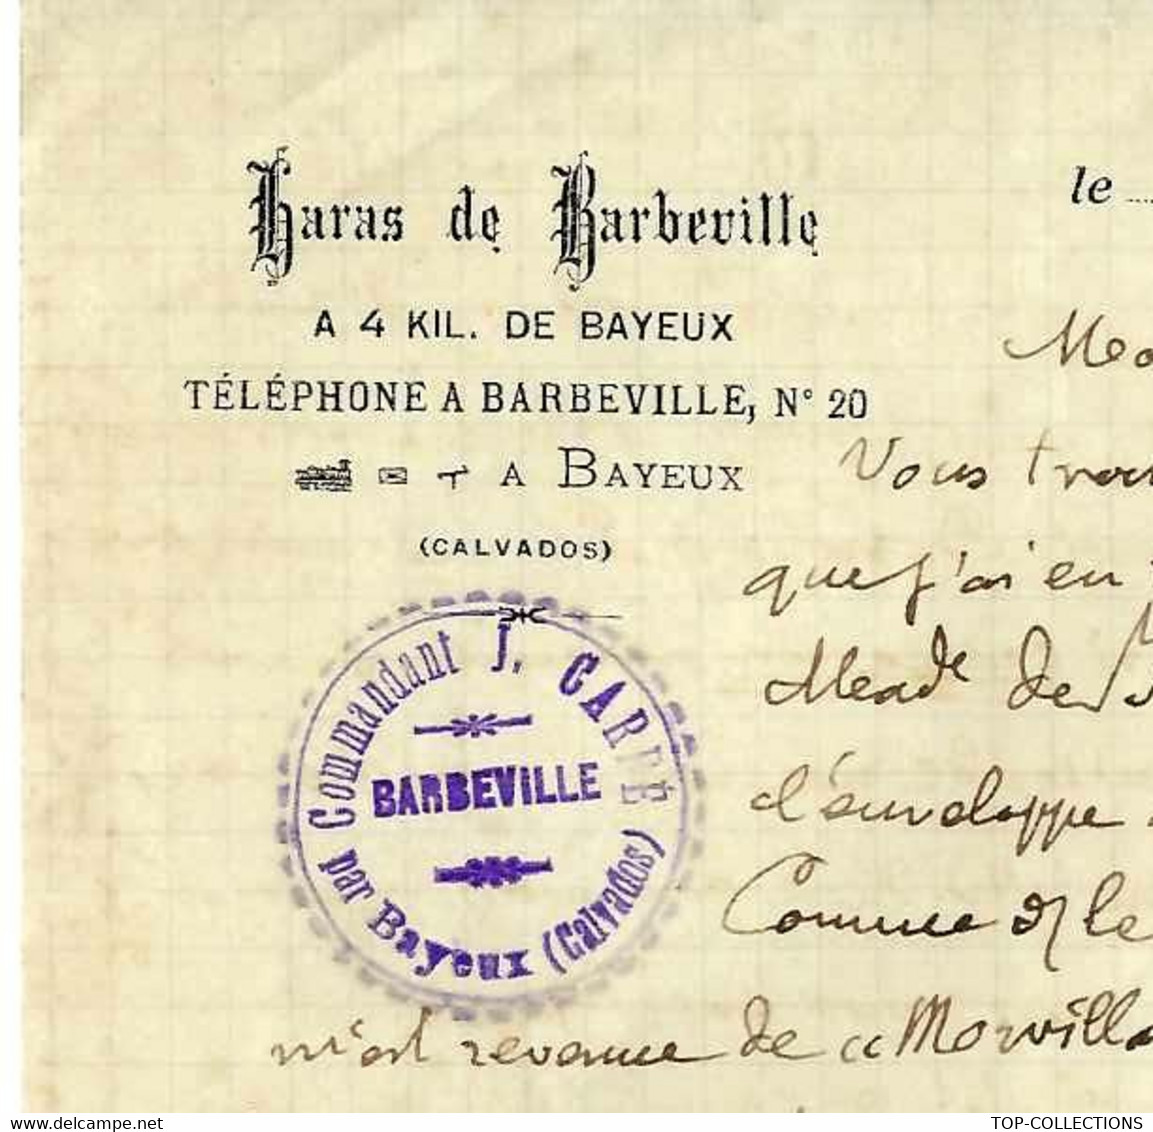 Haras de Barbeville
le
A 4 KIL. DE BAYEUX
TÉLÉPHONE A BARBEVILLE, N° 20
A BAYEUX
(CALVADOS)
Commandant J. CARRÉ
BARBEVILLE
par Bayeux (Calvados)
Vous
que j'ai eu
de
d'enveloppe
Comme
m'est revenue de "Morvilla
delcampe.net
TOP-COLLECTIONS